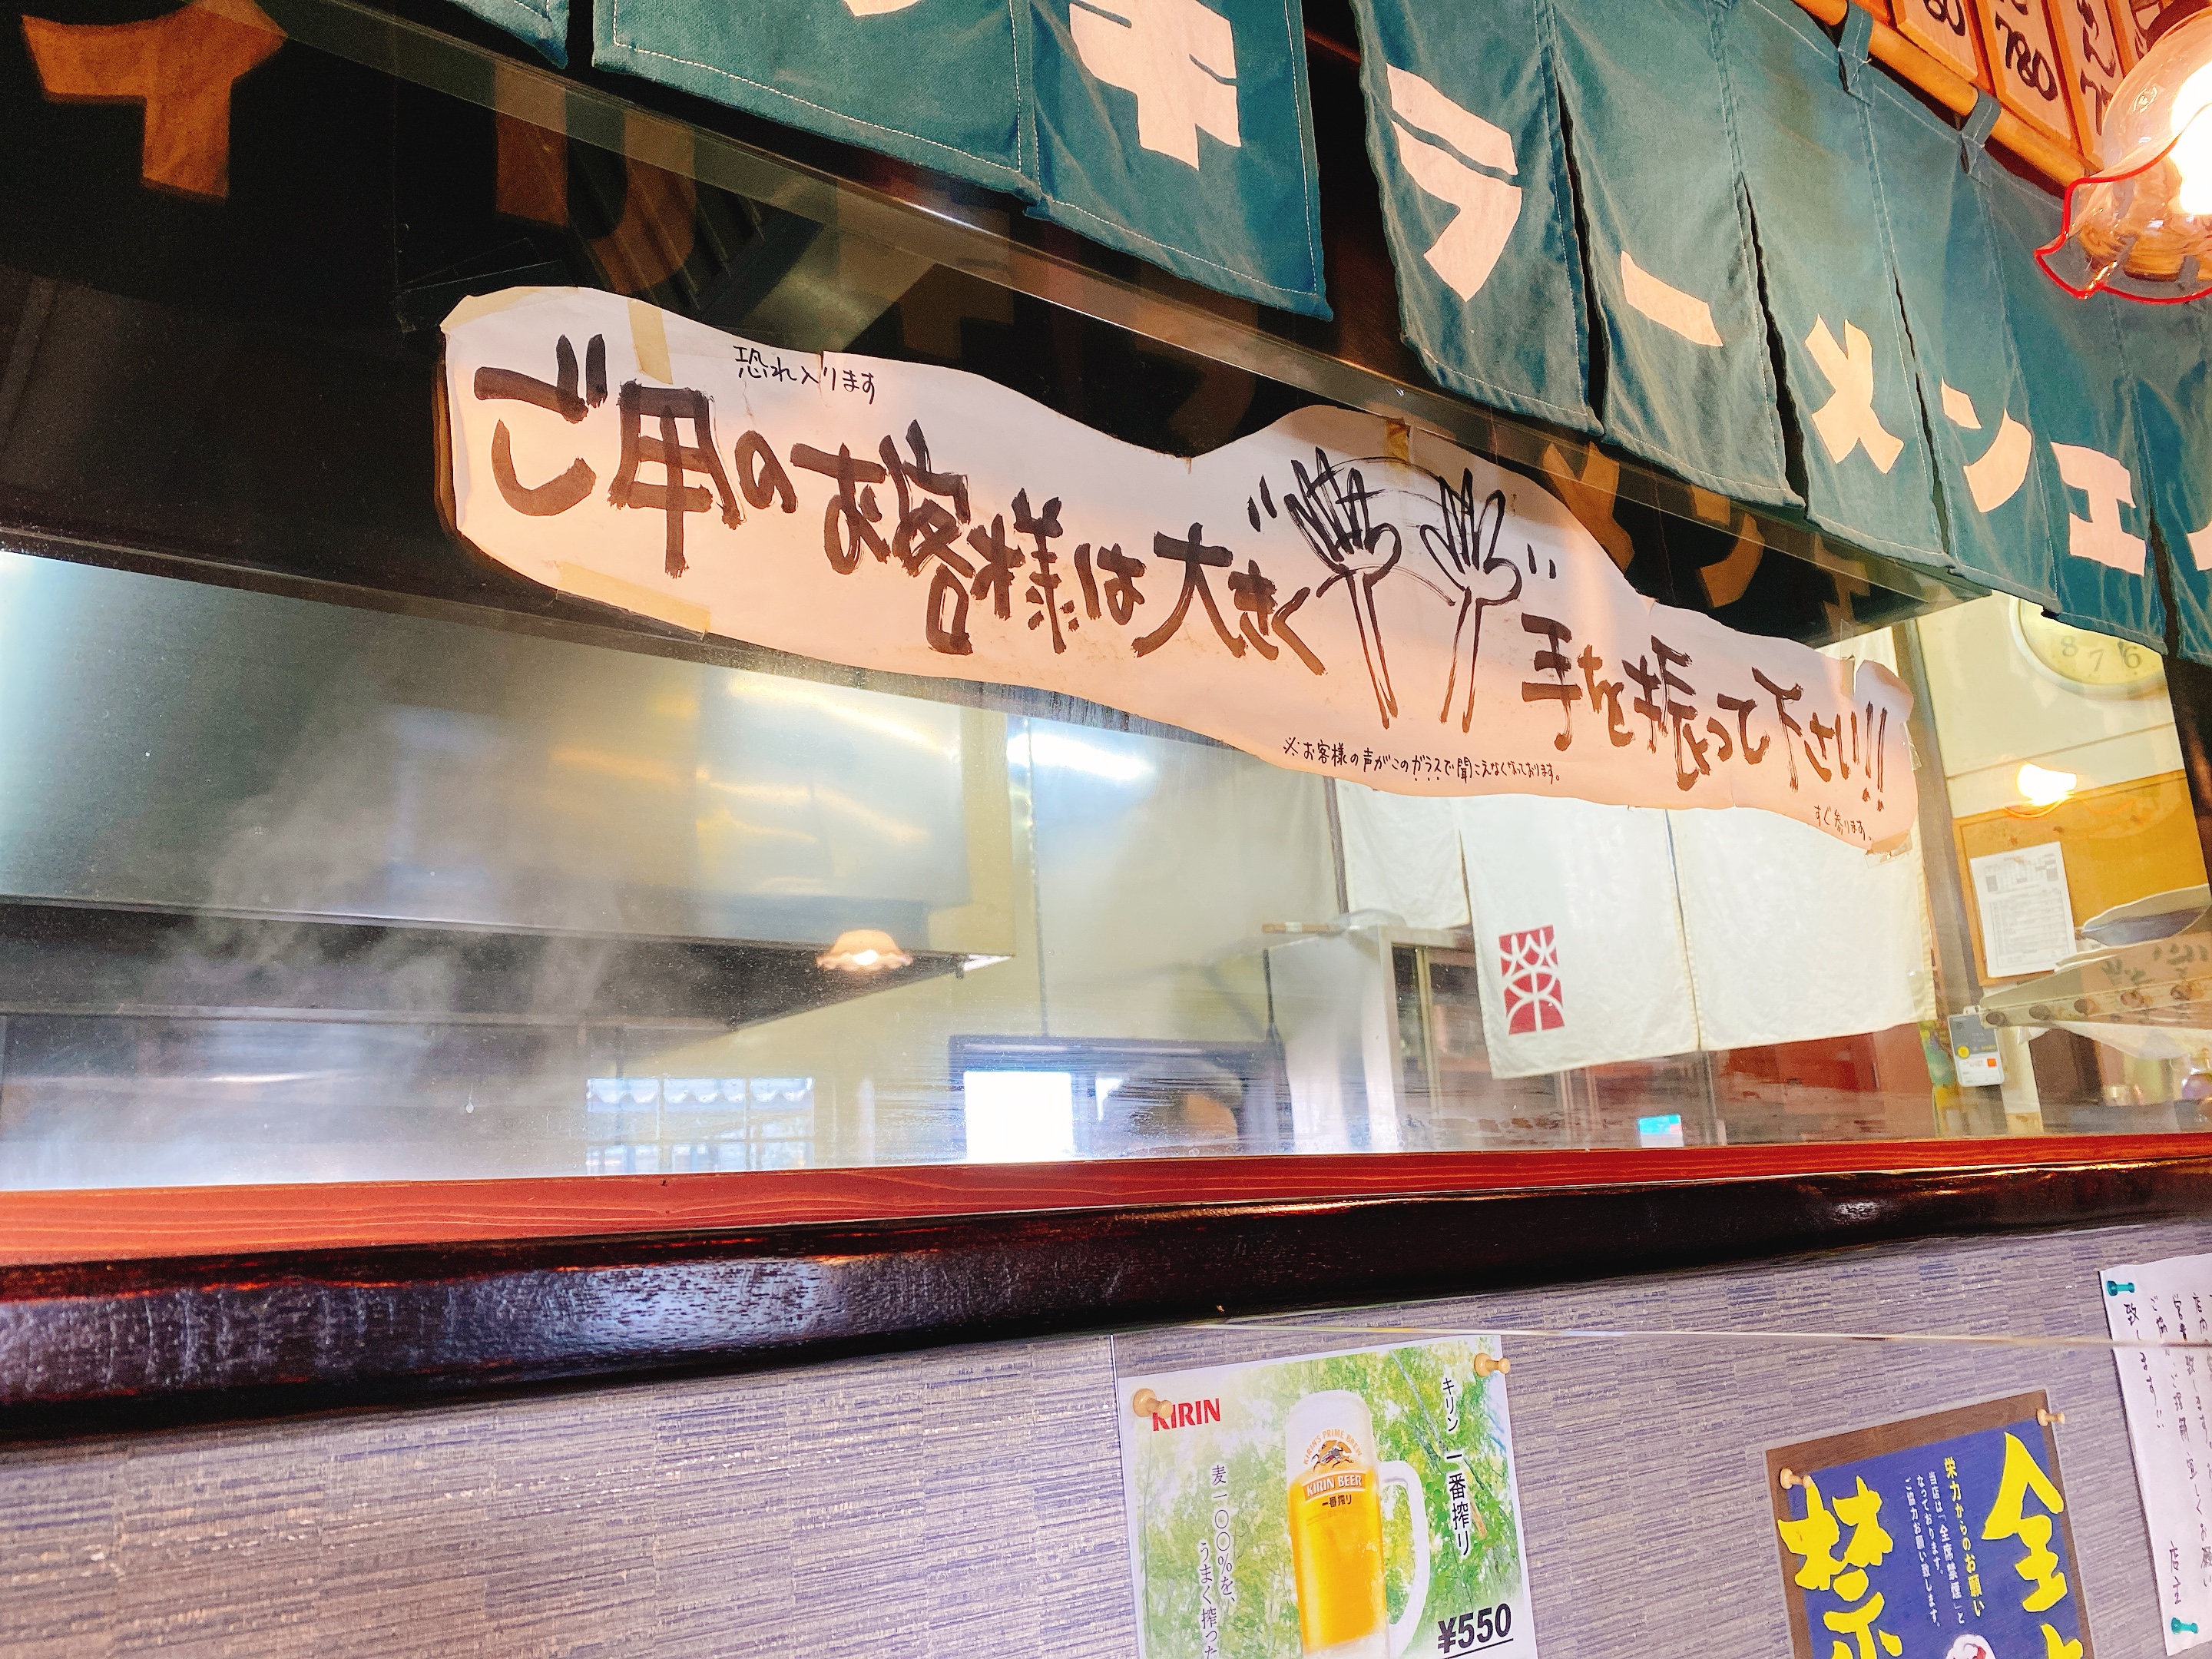 キ
ラーメンエ
780
恐れ入ります
ご用のお客様は大きく〝 〟手を振って下さい!!
※お客様の声がこのガラスで聞こえなくなっております。
すぐ参ります。
8 7 6
KIRIN
キリン 一番搾り
KIRIN'S PRIME BREW
KIRIN BEER
一番搾り
麦一〇〇%を、
うまく搾った
¥550
全
栄力からのお願い
当店は「全席禁煙」と
なっております。
ご協力お願い致します。
禁
致します!!
店主